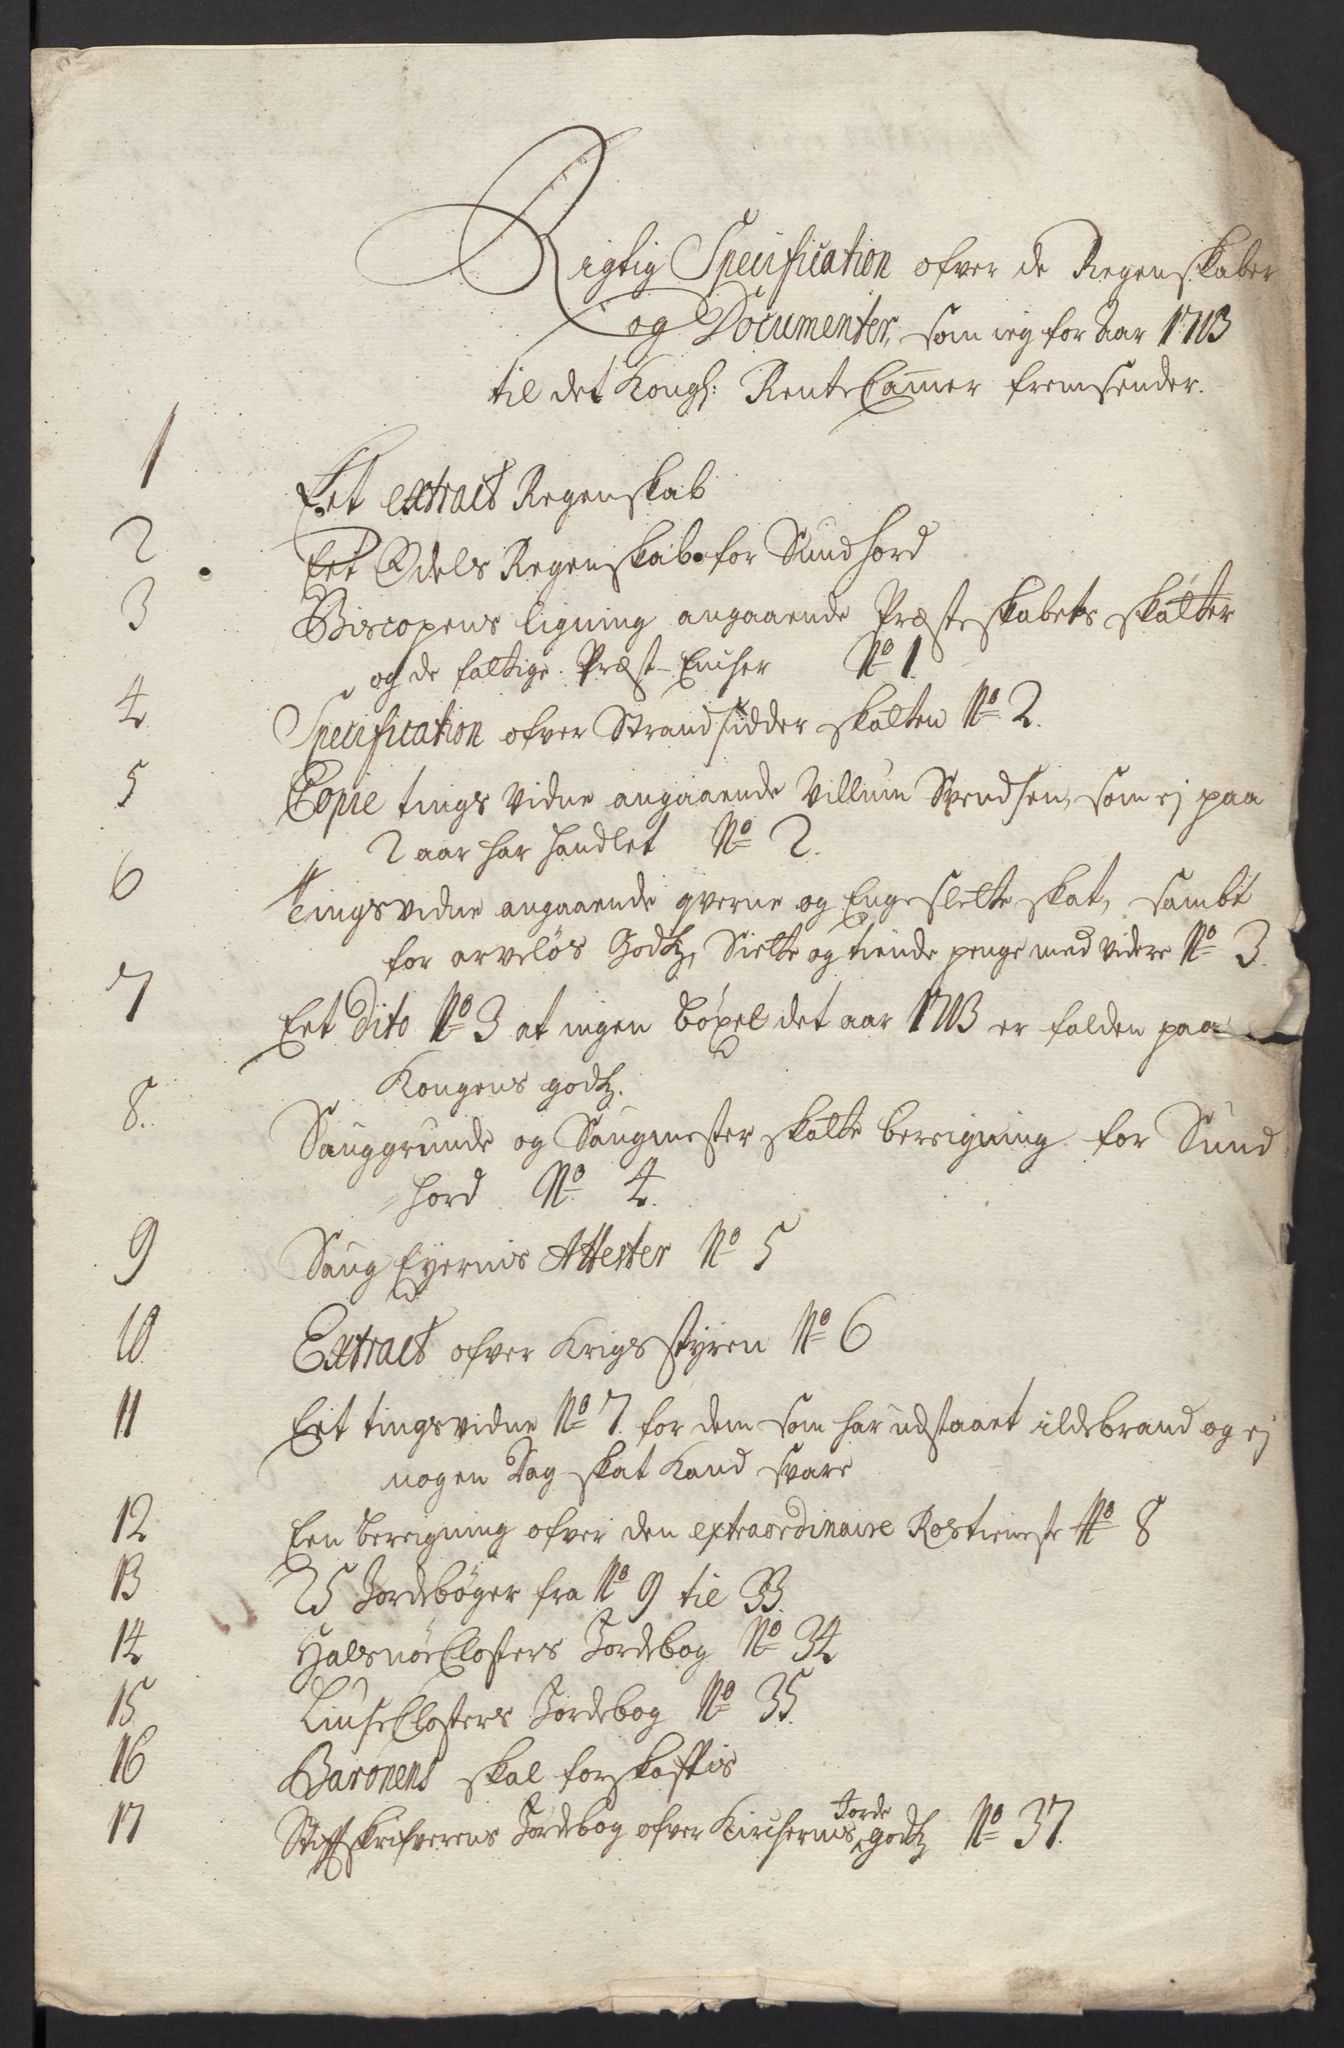 Rigtig Specification ofver de Regenskaber
og Documenter, som ieg for Aar 1713
til det Kongl: RenteCammer fremsender.
1 Eet extract Regenskab
2 Eet Odels Regenskab for Sundhord
3 Biscopens ligning angaaende Præsteskabets skatter
og de fattige Præst-Encher No 1
4 Specification ofver Strandsidder skatten No 2.
5 Copie tings vidne angaaende Villum Svendsen, som ej paa
2 aar har handlet No 2.
6 Tingsvidne angaaende qverne og Engeslette skat, sambt
for arveløs Godtz, Siette og tiende penge med videre No 3.
7 Eet dito No 3 at ingen bøxel det aar 1713 er falden paa
Kongens godtz.
8. Sauggrunde og Saugmester skatte beregning for Sund
hord No 4.
9 Saug Eyernis Attester No 5
10 Extract ofver Krigs styren No 6
11 Eet tingsvidne No 7 for dem som har udstaaet ildebrand og ej
nogen Dag skat kand svare
12 Een beregning ofver den extraordinaire Rostieneste No 8
13 25 Jordebøger fra No 9 til 33.
14 Halsnøe Closters Jordebog No 34
15 Liuse Closters Jordebog No 35.
16 Baronens skal forskaffis
17 Stiftskrifverens Jordebog ofver Kirchernis Jorde godtz No 37.